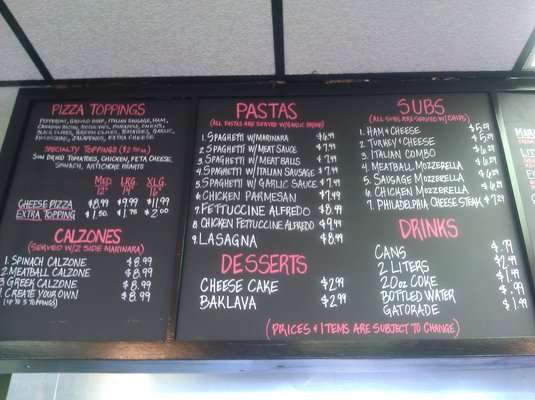 PIZZA TOPPINGS
PEPPERONI, GROUND BEEF, ITALIAN SAUSAGE, HAM,
CANADIAN BACON, ANCHOVIES, PINEAPPLE, ONIONS,
BLACK OLIVES, GREEN OLIVES, TOMATOES, GARLIC,
JALAPENOS, EXTRA CHEESE
SPECIALTY TOPPINGS
SUN DRIED TOMATOES, CHICKEN, FETA CHEESE,
SPINACH, ARTICHOKE HEARTS
MED LRG. XLG.
CHEESE PIZZA $8.99 $9.99 $11.99
EXTRA TOPPING $1.50 $1.75 $2.00
CALZONES
(SERVED W/2 SIDE MARINARA)
1. SPINACH CALZONE $8.99
2. MEATBALL CALZONE $8.99
3. GREEK CALZONE $8.99
4. CREATE YOUR OWN $8.99
(UP TO 3 TOPPINGS)
PASTAS
(ALL PASTAS ARE SERVED W/GARLIC BREAD)
1. SPAGHETTI W/MARINARA $6.99
2. SPAGHETTI W/MEAT SAUCE $7.99
3. SPAGHETTI W/MEAT BALLS $7.99
4. SPAGHETTI W/ITALIAN SAUSAGE $7.99
5. SPAGHETTI W/GARLIC SAUCE $7.99
6. CHICKEN PARMESAN $7.99
7. FETTUCCINE ALFREDO $8.99
8. CHICKEN FETTUCCINE ALFREDO $9.99
9. LASAGNA $8.99
DESSERTS
CHEESE CAKE $2.99
BAKLAVA $2.99
SUBS
(ALL SUBS ARE SERVED W/CHIPS)
1. HAM & CHEESE $5.29
2. TURKEY & CHEESE $5.29
3. ITALIAN COMBO $6.29
4. MEATBALL MOZZERELLA $6.29
5. SAUSAGE MOZZERELLA $6.29
6. CHICKEN MOZZERELLA $6.29
7. PHILADELPHIA CHEESE STEAK $7.29
DRINKS
CANS $.79
2 LITERS $2.99
20oz COKE $1.99
BOTTLED WATER
GATORADE $1.99
(PRICES & ITEMS ARE SUBJECT TO CHANGE)